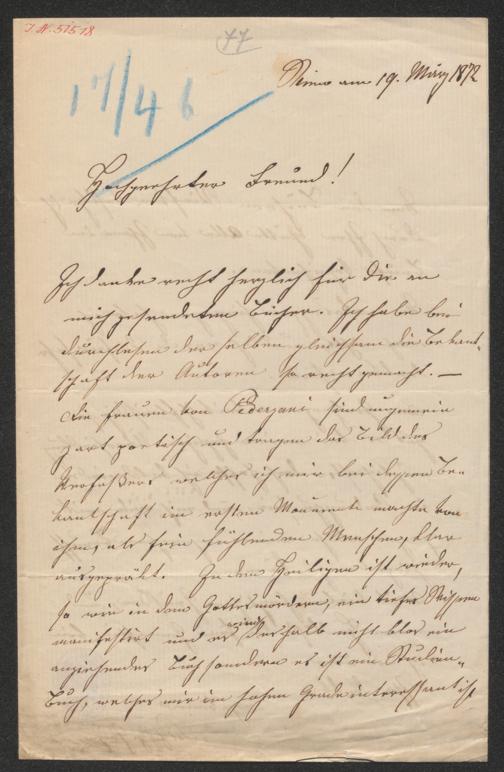 J.N. 51518
77
17/46
am 19. März 1872
Hochgeehrter Freund!
Ich danke recht herzlich für die an
mich gesendeten Bücher. Ich habe bei
durchlesen der selben gleichsam die Bekant-
schaft der Autoren so recht gemacht. —
Die Frauen von Pederzani sind ungemein
zart poetisch und tragen das Bild des
Verfaßers welches ich mir bei dessen Be-
kantschaft im ersten Momente machte von
ihm, als fein fühlenden Menschen, klar
ausgepräkt. In den Heiligen ist wieder,
so wie in den Gottesmördern, ein tiefes Wissen
manifestirt und es wird deshalb nicht blos ein
anziehendes Buch sondern es ist ein Studien-
Buch, welches mir im hohen Grade interessant ist